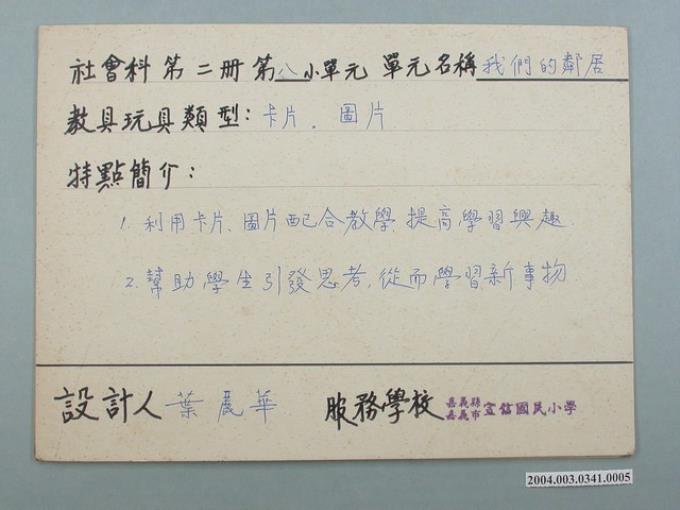 社會科第二册第八小單元 單元名稱 我們的鄰居
教具玩具類型：卡片．圖片
特點簡介：
1. 利用卡片、圖片配合教學，提高學習興趣．
2. 幫助學生引發思考，從而學習新事物
設計人 葉麗華 服務學校 嘉義縣嘉義市宣信國民小學
2004.003.0341.0005